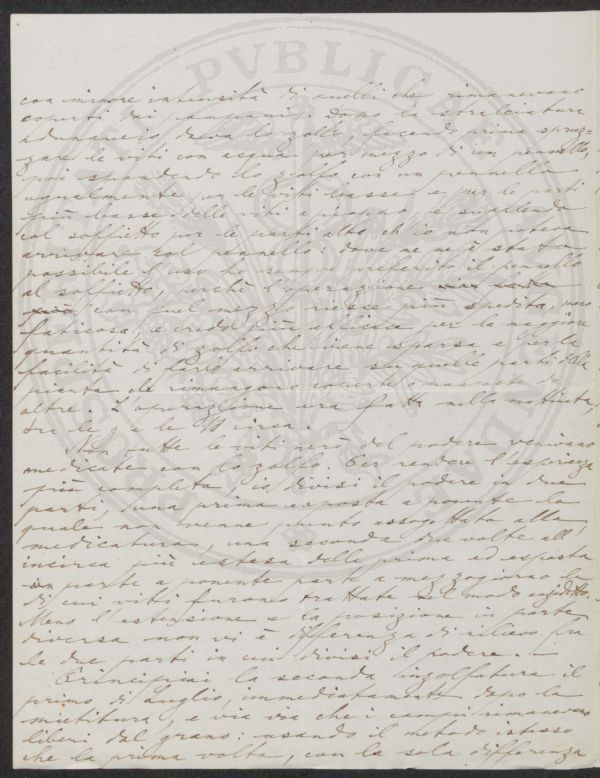 con minore intensità di quelli che rimanevano
coperti dai pampani. Dopo la stralciatura
davo lo zolfo, facendo prima spruz-
zare le viti con acqua per mezzo di un pennello,
poi spandendo lo zolfo con un pennello
ugualmente per le viti basse e per le parti
più basse delle viti a pioppo, e
col soffietto per le parti alte ch'io non poteva
arrivare col pennello: dove me ne è stato
possibile l'uso ho sempre preferito il pennello
al soffietto, perchè l'operazione
con quel mezzo riesce più spedita, meno
faticosa, e credo più efficace per la maggiore
quantità di zolfo che viene sparsa e per la
facilità di farlo arrivare su quelle parti della
pianta che rimangon coperte o nascoste da
altre. L'operazione era fatta nella mattinata,
tra le 7 e le circa.
Non tutte le viti però del podere venivano
medicate con lo zolfo. Per rendere l'esperienza
più completa io divisi il podere in due
parti, una prima esposta a ponente la
quale non venne punto assoggettata alla
medicatura, una seconda due volte all'
incirca più estesa della prima ed esposta
parte a ponente parte a mezzogiorno le
di cui viti furono trattate nel modo anzidetto.
Meno l'estensione e la posizione in parte
diversa non vi è differenza di rilievo fra
le due parti in cui divisi il podere. —
Principiai la seconda inzolfatura il
primo di Luglio, immediatamente dopo la
mietitura, e via via che i campi rimanevano
liberi dal grano: usando il metodo istesso
che la prima volta, con la sola differenza
PVBLICA